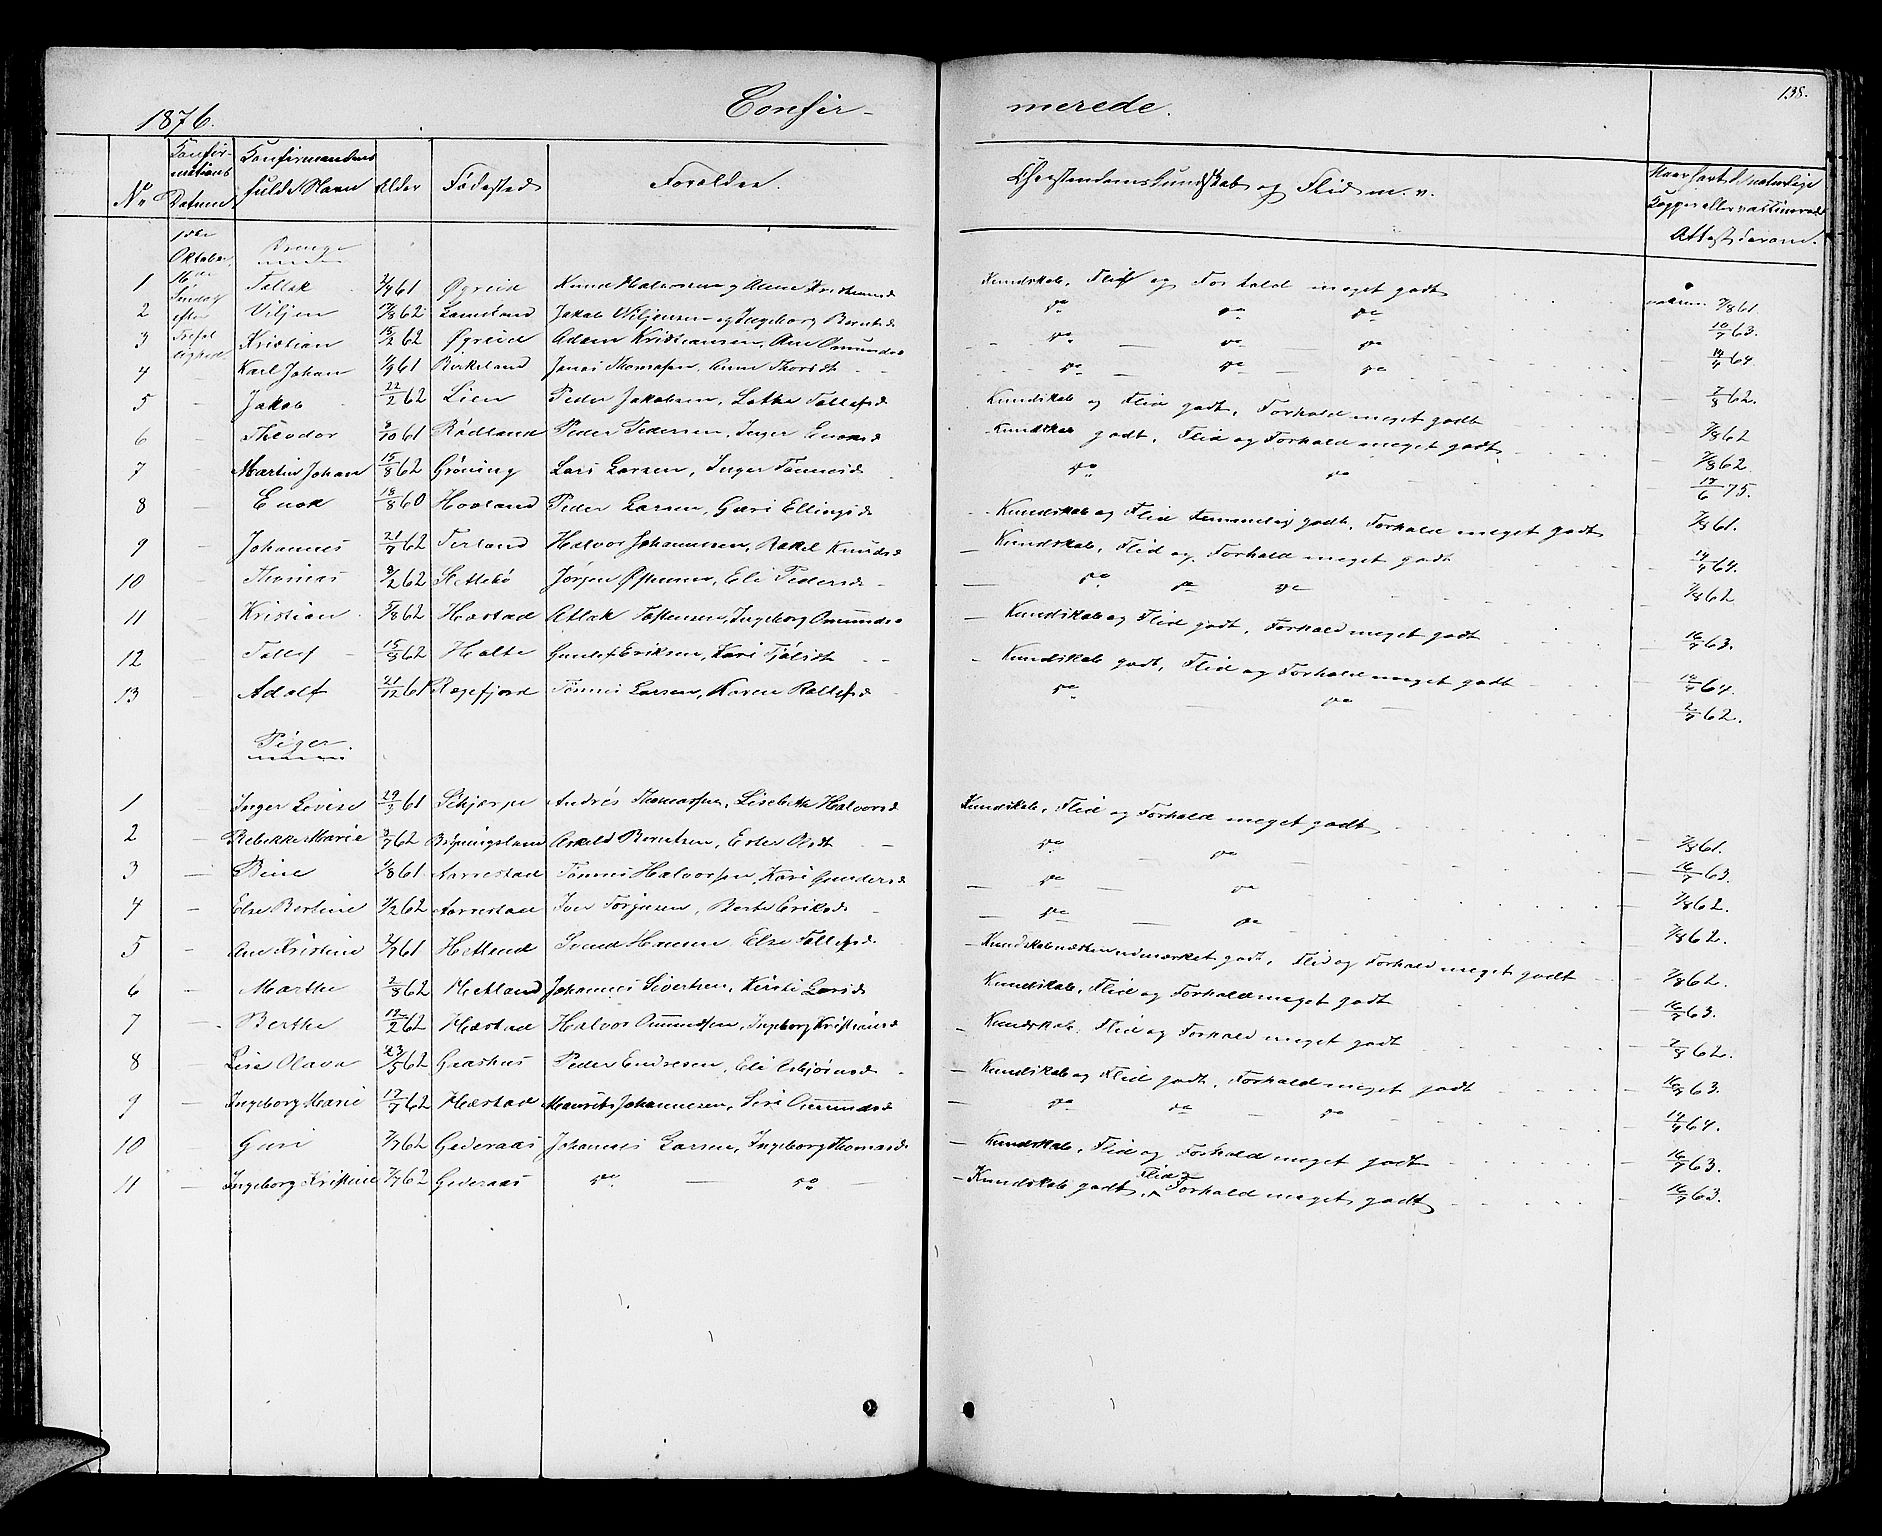 138.
1876. Confir- merede.
No Konfirmations Datum Konfirmandens fulde Navn Alder Fødested Forældre. Christendomskundskab og Flid m. v. Naar havt de naturlige Kopper eller vaccinerede Attest derom.
Oktober. Drenge
1 16de Søndag efter Trefoldighed Tallak 61 Øgreid Knud Halvorsen og Kundskab, Flid og Forhold meget godt 7/8 61.
2 Viljen 17/8 62 Jakob Viljensen og Ingeborg Berntsd do do do 10/7 63.
3 Kristian 15/2 62 Øgreid Adam Kristiansen, Ane Omundsd do do do 14/9 64.
4 Karl Johan 1/9 61 Birkeland Jonas Thomassen, Anne do do do 7/8 62.
5 Jakob 22/2 62 Lien Peder Jakobsen, Lothe Tollefsd Kundskab og Flid godt, Forhold meget godt 7/8 62
6 Theodor 9/10 61 Rødland Peder Pedersen, Inger Kundskab godt, Flid og Forhold meget godt 7/8 62.
7 Martin Johan 15/8 62 Grøning Lars Larsen, Inger Tønnesd do do 17/6 75.
8 Enok 18/8 60 Hovland Peder Larsen, Guri Ellingsd Kundskab og Flid temmelig godt, Forhold meget godt 7/8 61.
9 Johannes 21/7 62 Terland Halvor Johannessen, Rakel Knudsd Kundskab, Flid og Forhold meget godt 14/9 64.
10 Thomas 9/2 62 Slettebø Jørgen Eli Pedersd do do do 7/8 62
11 Kristian 5/8 62 Hæstad Atlak Tostensen, Ingeborg Omundsd Kundskab og Flid godt, Forhold meget godt 16/7 63.
12 Tollef 15/8 62 Holte Gunlef Eriksen, Kari Kundskab godt, Flid og Forhold meget godt 14/9 64.
13 Adolf 21/12 61 Rægefjord Tønnes Larsen, Karen Rollefsd do do 2/9 62.
Piger.
1 Inger Lovise 29/3 61 Skjærpe Andreas Thomassen, Lisebeth Halvorsd Kundskab, Flid og Forhold meget godt 7/8 61.
2 Rebekka Marie 9/7 62 Askeld Berntsen, Ester do do 16/7 63.
3 Bine 1/8 61 Aarrestad Tønnes Halvorsen, Kari Gundersd do do 7/8 62.
4 Else Bertine 7/2 62 Aarrestad Iver Torgersen, Berte Eriksd do do 7/8 62.
5 Ane Kristine 61 Hetland Svend Hansen Else Tollefsd. Kundskab næsten udmærket godt, Flid og Forhold meget godt 7/8 62.
6 Marthe 2/8 62 Hetland Johannes Sivertsen, Kirsti Larsd Kundskab, Flid og Forhold meget godt 16/7 63.
7 Berthe 12/2 62 Hæstad Halvor Omundsen, Ingeborg Kristiansd Kundskab, Flid og Forhold meget godt 7/8 62.
8 Lise Olava 23/5 62 Graashus Peder Endresen, Eli Asbjørnsd Kundskab og Flid godt, Forhold meget godt 16/7 63.
9 Ingeborg Marie 17/7 62 Hæstad Maurits Johannesen, Siri Omundsd do do do 14/9 64.
10 Guri 7/7 62 Gederaas Johannes Larsen, Ingeborg Thomasd Kundskab, Flid og Forhold meget godt 16/7 63.
11 Ingeborg Kristine 7/7 62 Gederaas do do Kundskab godt, Flid og Forhold meget godt 16/7 63.